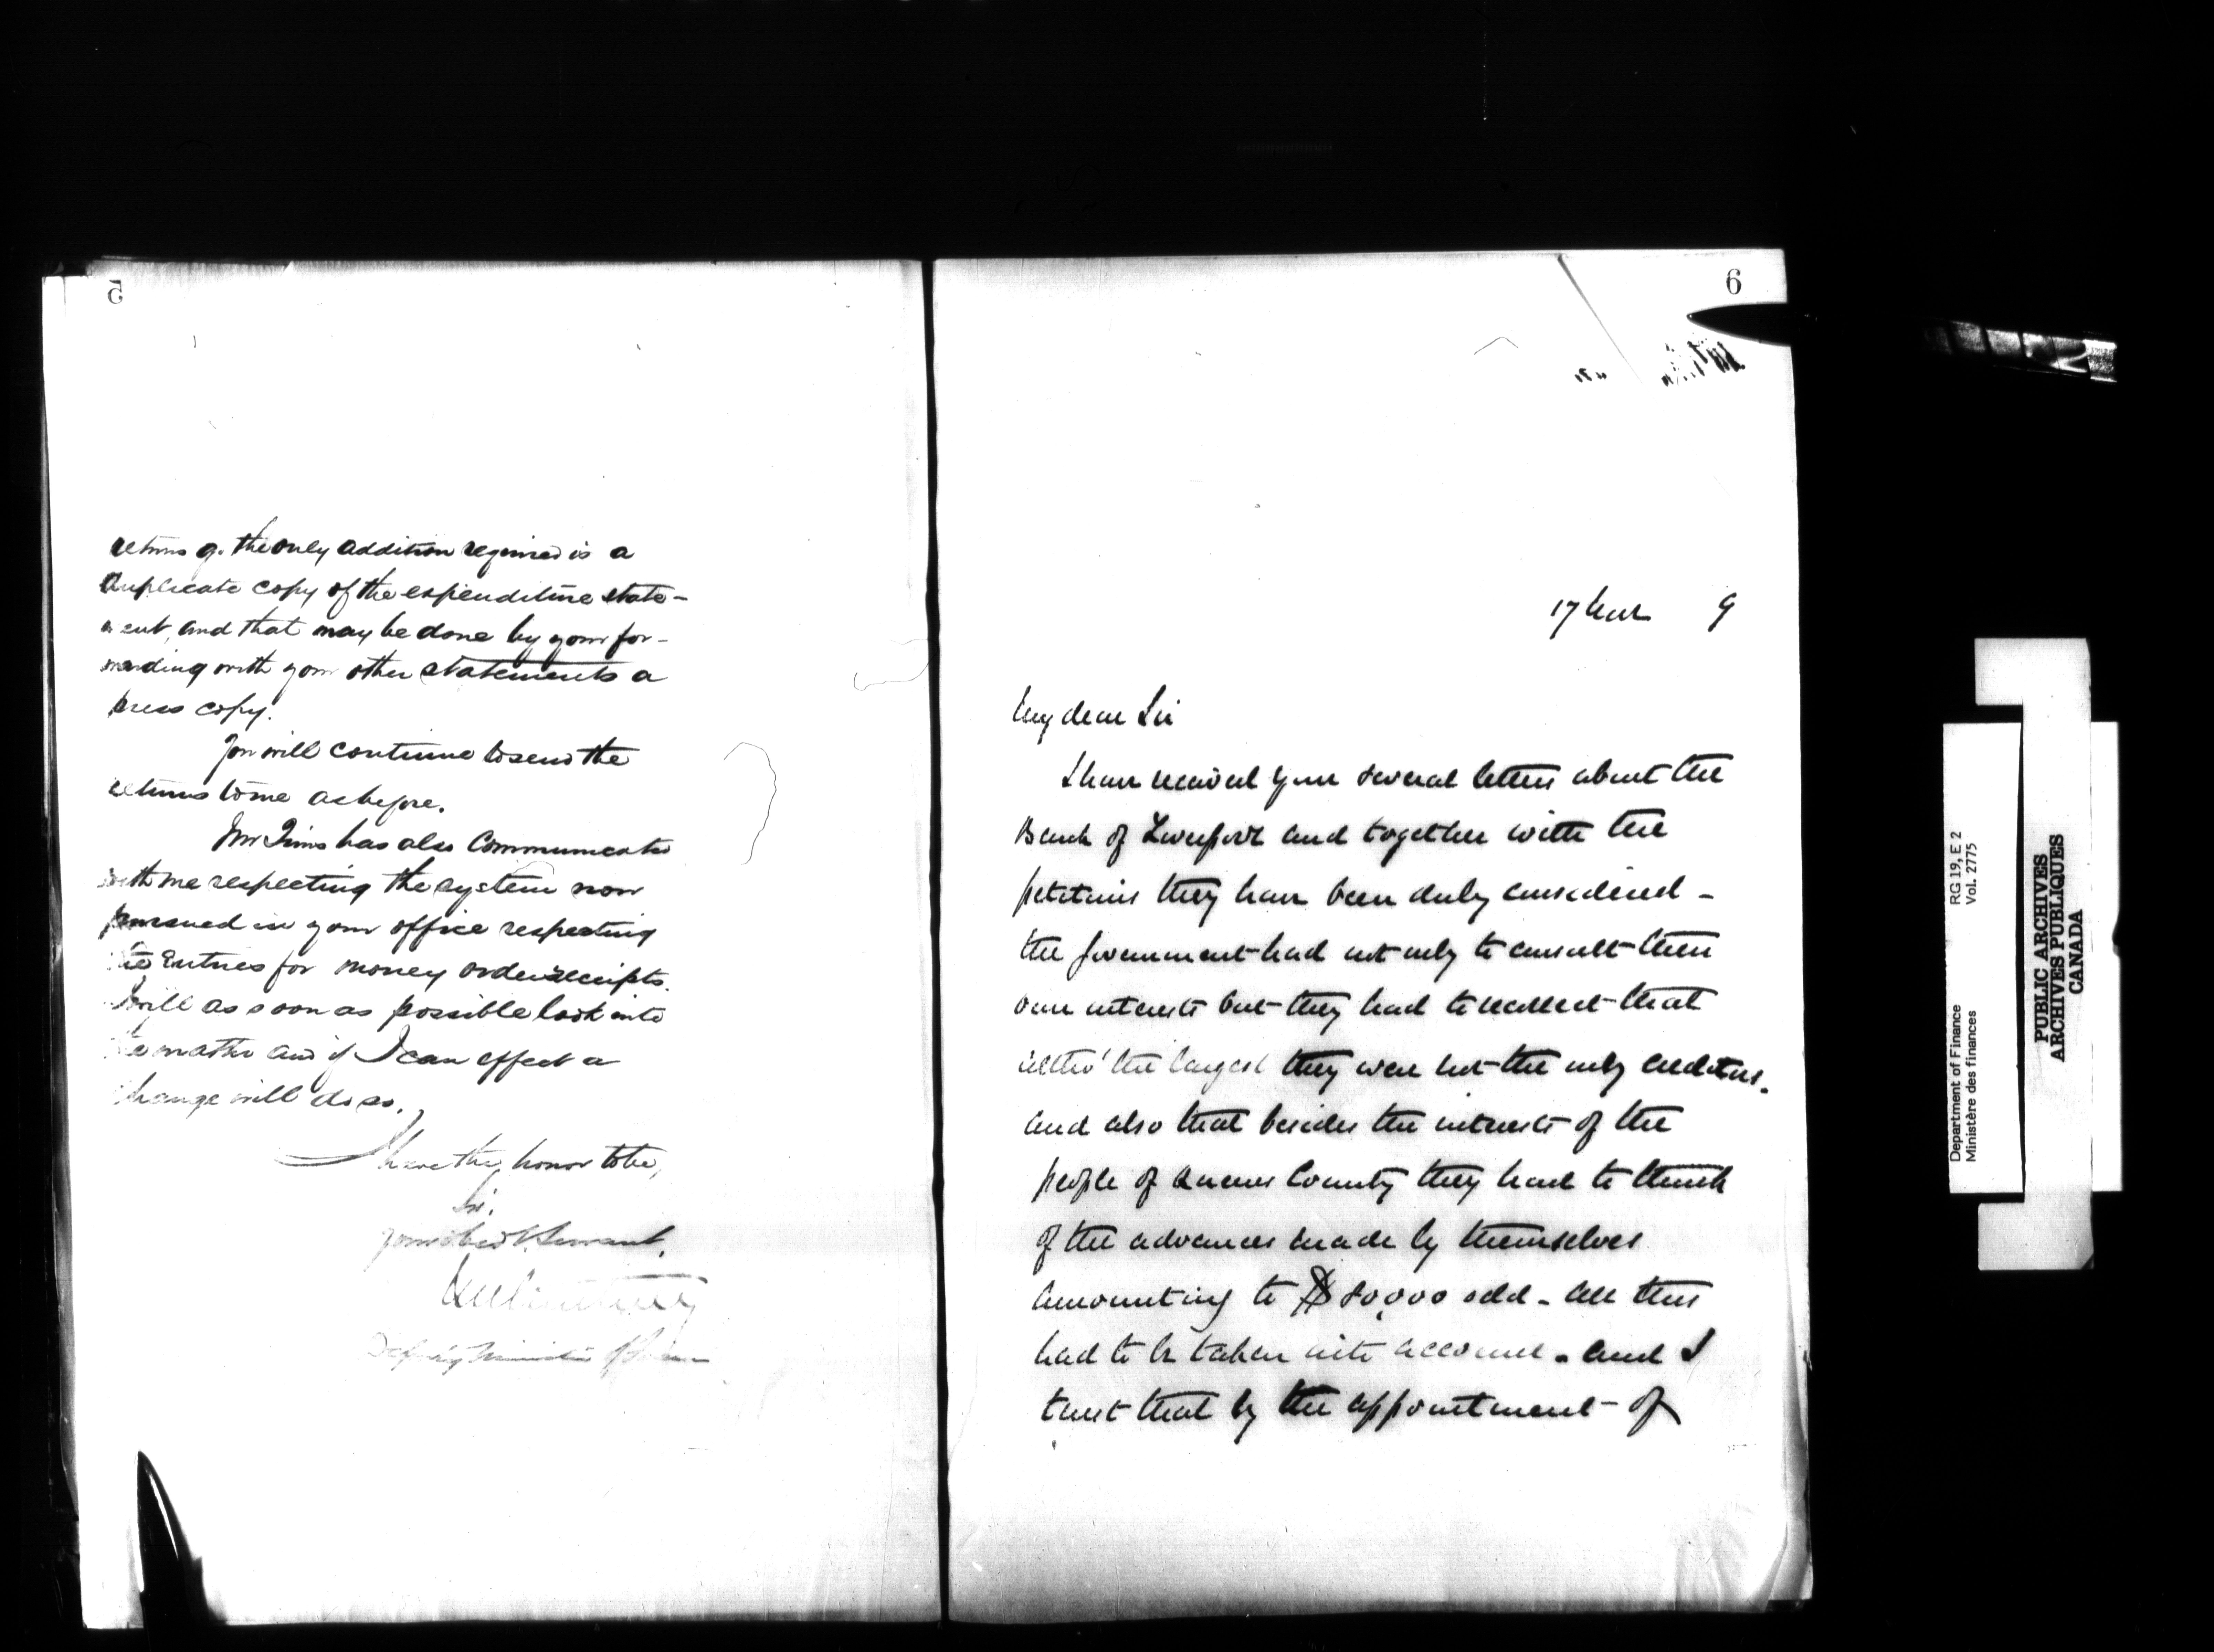 5
returns &. the only addition required is a
duplicate copy of the expenditure state-
ment, and that may be done by your for-
warding with your other statements a
press copy.
You will continue to send the
returns to me as before.
Mr Tims has also communicated
with me respecting the system now
pursued in your office respecting
the Entries for money order receipts.
I will as soon as possible look into
the matter and if I can effect a
change will do so.
I have the honor to be,
Sir,
Your obedt Servant,
Deputy Minister of Finance
6
17 Mar 9
My dear Sir
I have received your several letters about the
Bank of Liverpool and together with the
petitions they have been duly considered -
the Government had not only to consult their
own interests but they had to recollect that
altho' the largest they were not the only creditors.
and also that besides the interests of the
people of Queens County they had to think
of the advances made by themselves
amounting to $80,000 odd - All this
had to be taken into account - and I
trust that by the appointment of
Department of Finance RG 19, E 2
Ministère des finances Vol. 2775
PUBLIC ARCHIVES
ARCHIVES PUBLIQUES
CANADA